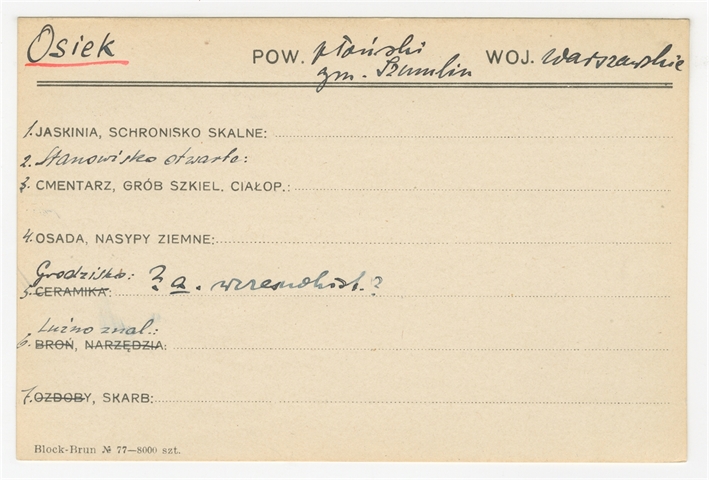 Osiek POW. płoński WOJ. Warszawskie
gm. Szumlin
1. JASKINIA, SCHRONISKO SKALNE:
2. Stanowisko otwarte:
3. CMENTARZ, GRÓB SZKIEL. CIAŁOP.:
4. OSADA, NASYPY ZIEMNE:
Grodzisko: ? a. wczesnohist.?
5. CERAMIKA:
Luźno znal.:
6. BROŃ, NARZĘDZIA:
7. OZDOBY, SKARB:
Block-Brun № 77—8000 szt.